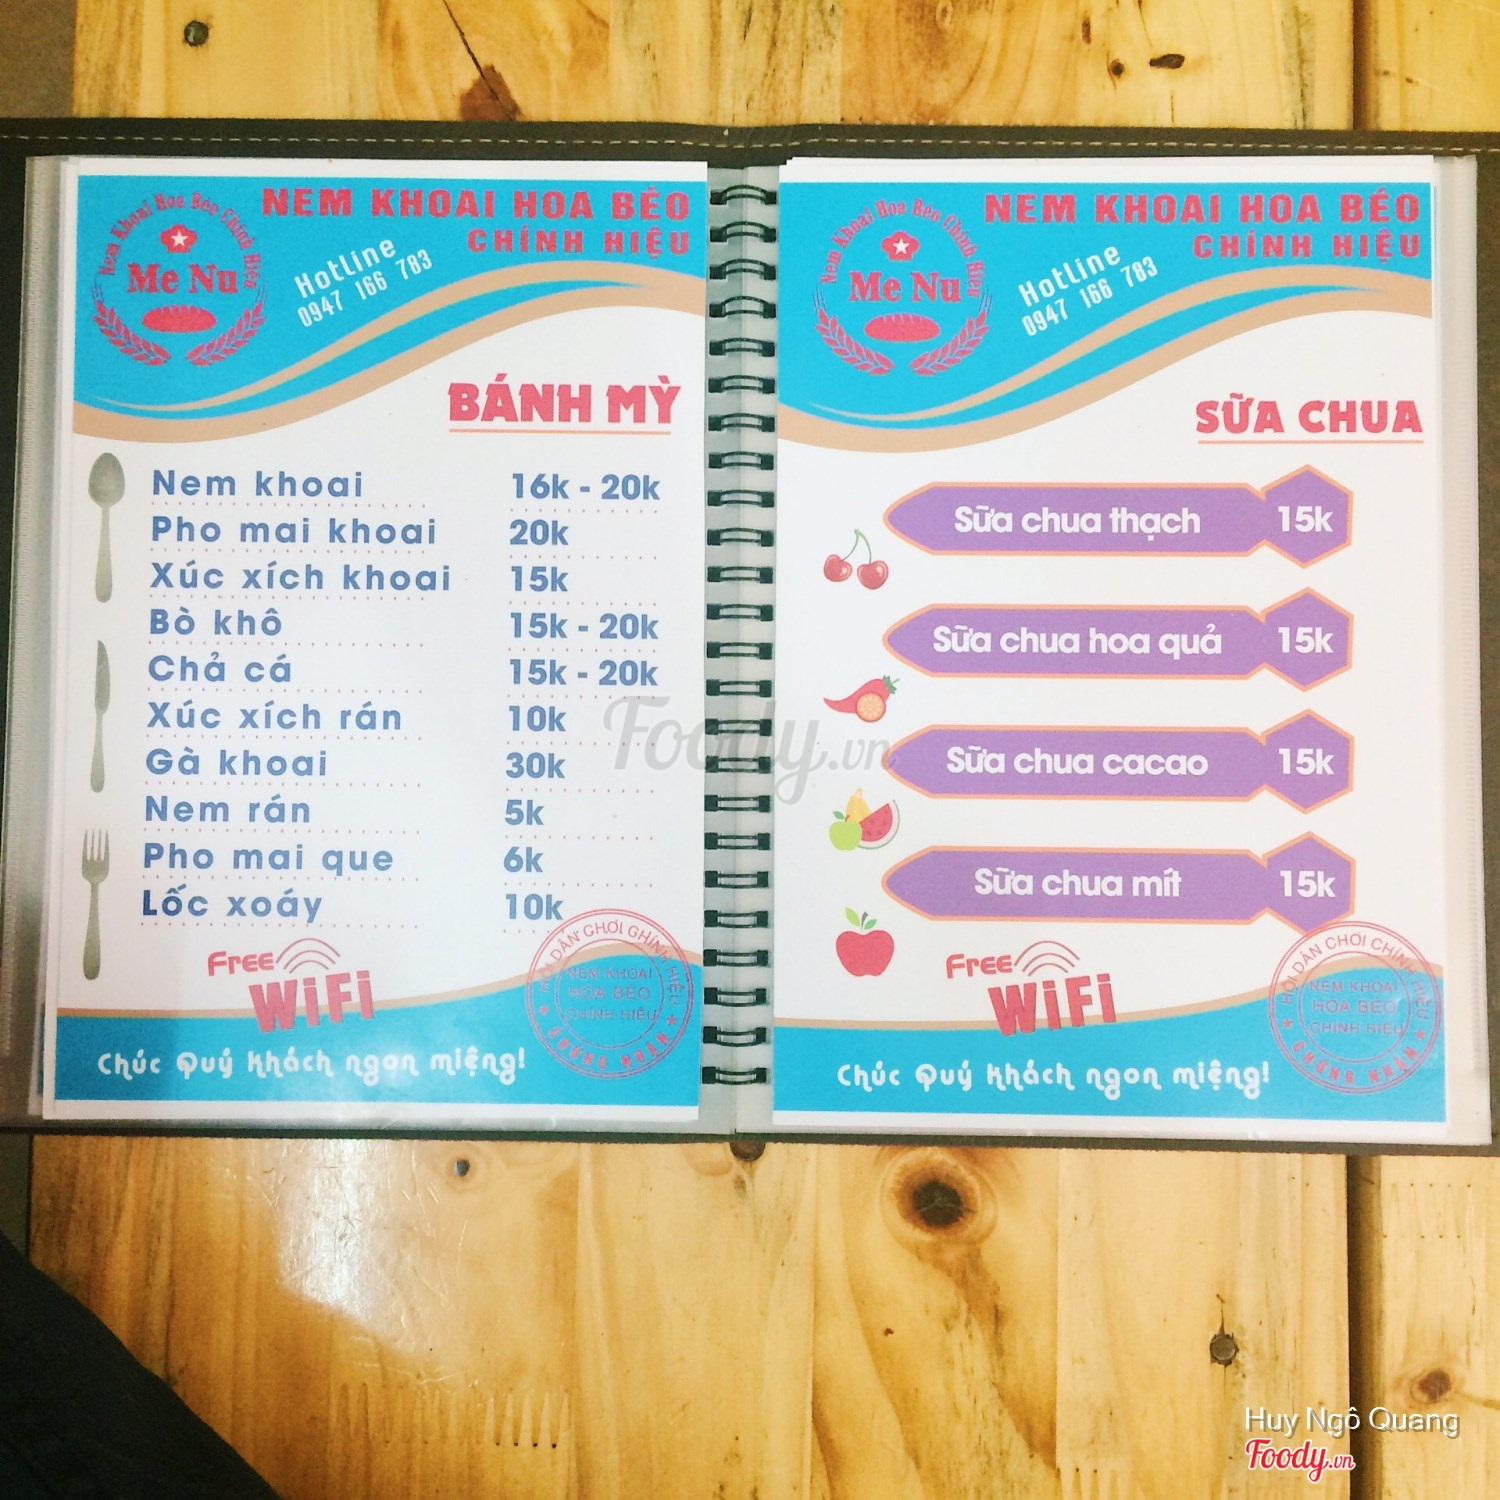 Nem Khoai Hoa Béo Chính Hiệu
Me Nu
NEM KHOAI HOA BÉO
CHÍNH HIỆU
Hotline
0947 166 783
BÁNH MỲ
Nem khoai 16k - 20k
Pho mai khoai 20k
Xúc xích khoai 15k
Bò khô 15k - 20k
Chả cá 15k - 20k
Xúc xích rán 10k
Gà khoai 30k
Nem rán 5k
Pho mai que 6k
Lốc xoáy 10k
Free
WiFi
HỘI DÂN CHƠI CHÍNH HIỆU
NEM KHOAI
HOA BÉO
CHÍNH HIỆU
CHỨNG NHẬN
Chúc Quý khách ngon miệng!
Nem Khoai Hoa Béo Chính Hiệu
Me Nu
NEM KHOAI HOA BÉO
CHÍNH HIỆU
Hotline
0947 166 783
SỮA CHUA
Sữa chua thạch 15k
Sữa chua hoa quả 15k
Sữa chua cacao 15k
Sữa chua mít 15k
Free
WiFi
HỘI DÂN CHƠI CHÍNH HIỆU
NEM KHOAI
HOA BÉO
CHÍNH HIỆU
CHỨNG NHẬN
Chúc Quý khách ngon miệng!
Foody.vn
Huy Ngô Quang
Foody.vn